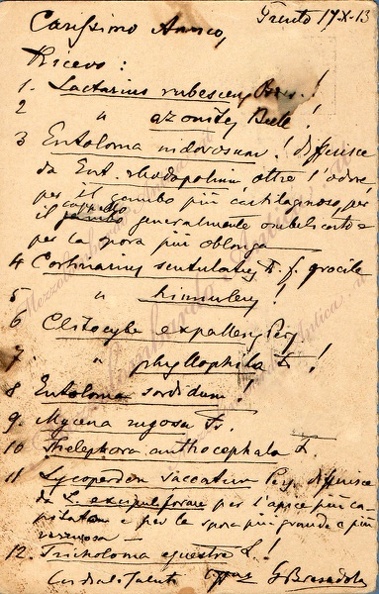 Trento 17 X - 13
Carissimo Amico,
Ricevo :
1. Lactarius rubescens Bres. !
2 " azonites Bull !
3 Entoloma nidorosum ! differisce
da Ent. rhodopolium, oltre l'odore
per il gambo più cartilagineo, per
il cappello generalmente ombelicato e
per la spora più oblonga
4 Cortinarius scutulatus Fr. f. gracile
5 " hinnuleus !
6 Clitocybe expallens Pers.
7. " phyllophila Fr. !
8 Entoloma sordidum !
9. Mycena rugosa Fr.
10 Thelephora anthocephala Fr.
11 Lycoperdon saccatum Pers. differisce
da L. excipuliforme per l'apice più ca-
pitatum e per le spore più grandi e più
verrucose
12. Tricholoma equestre L. !
Cordiali saluti G Bresadola